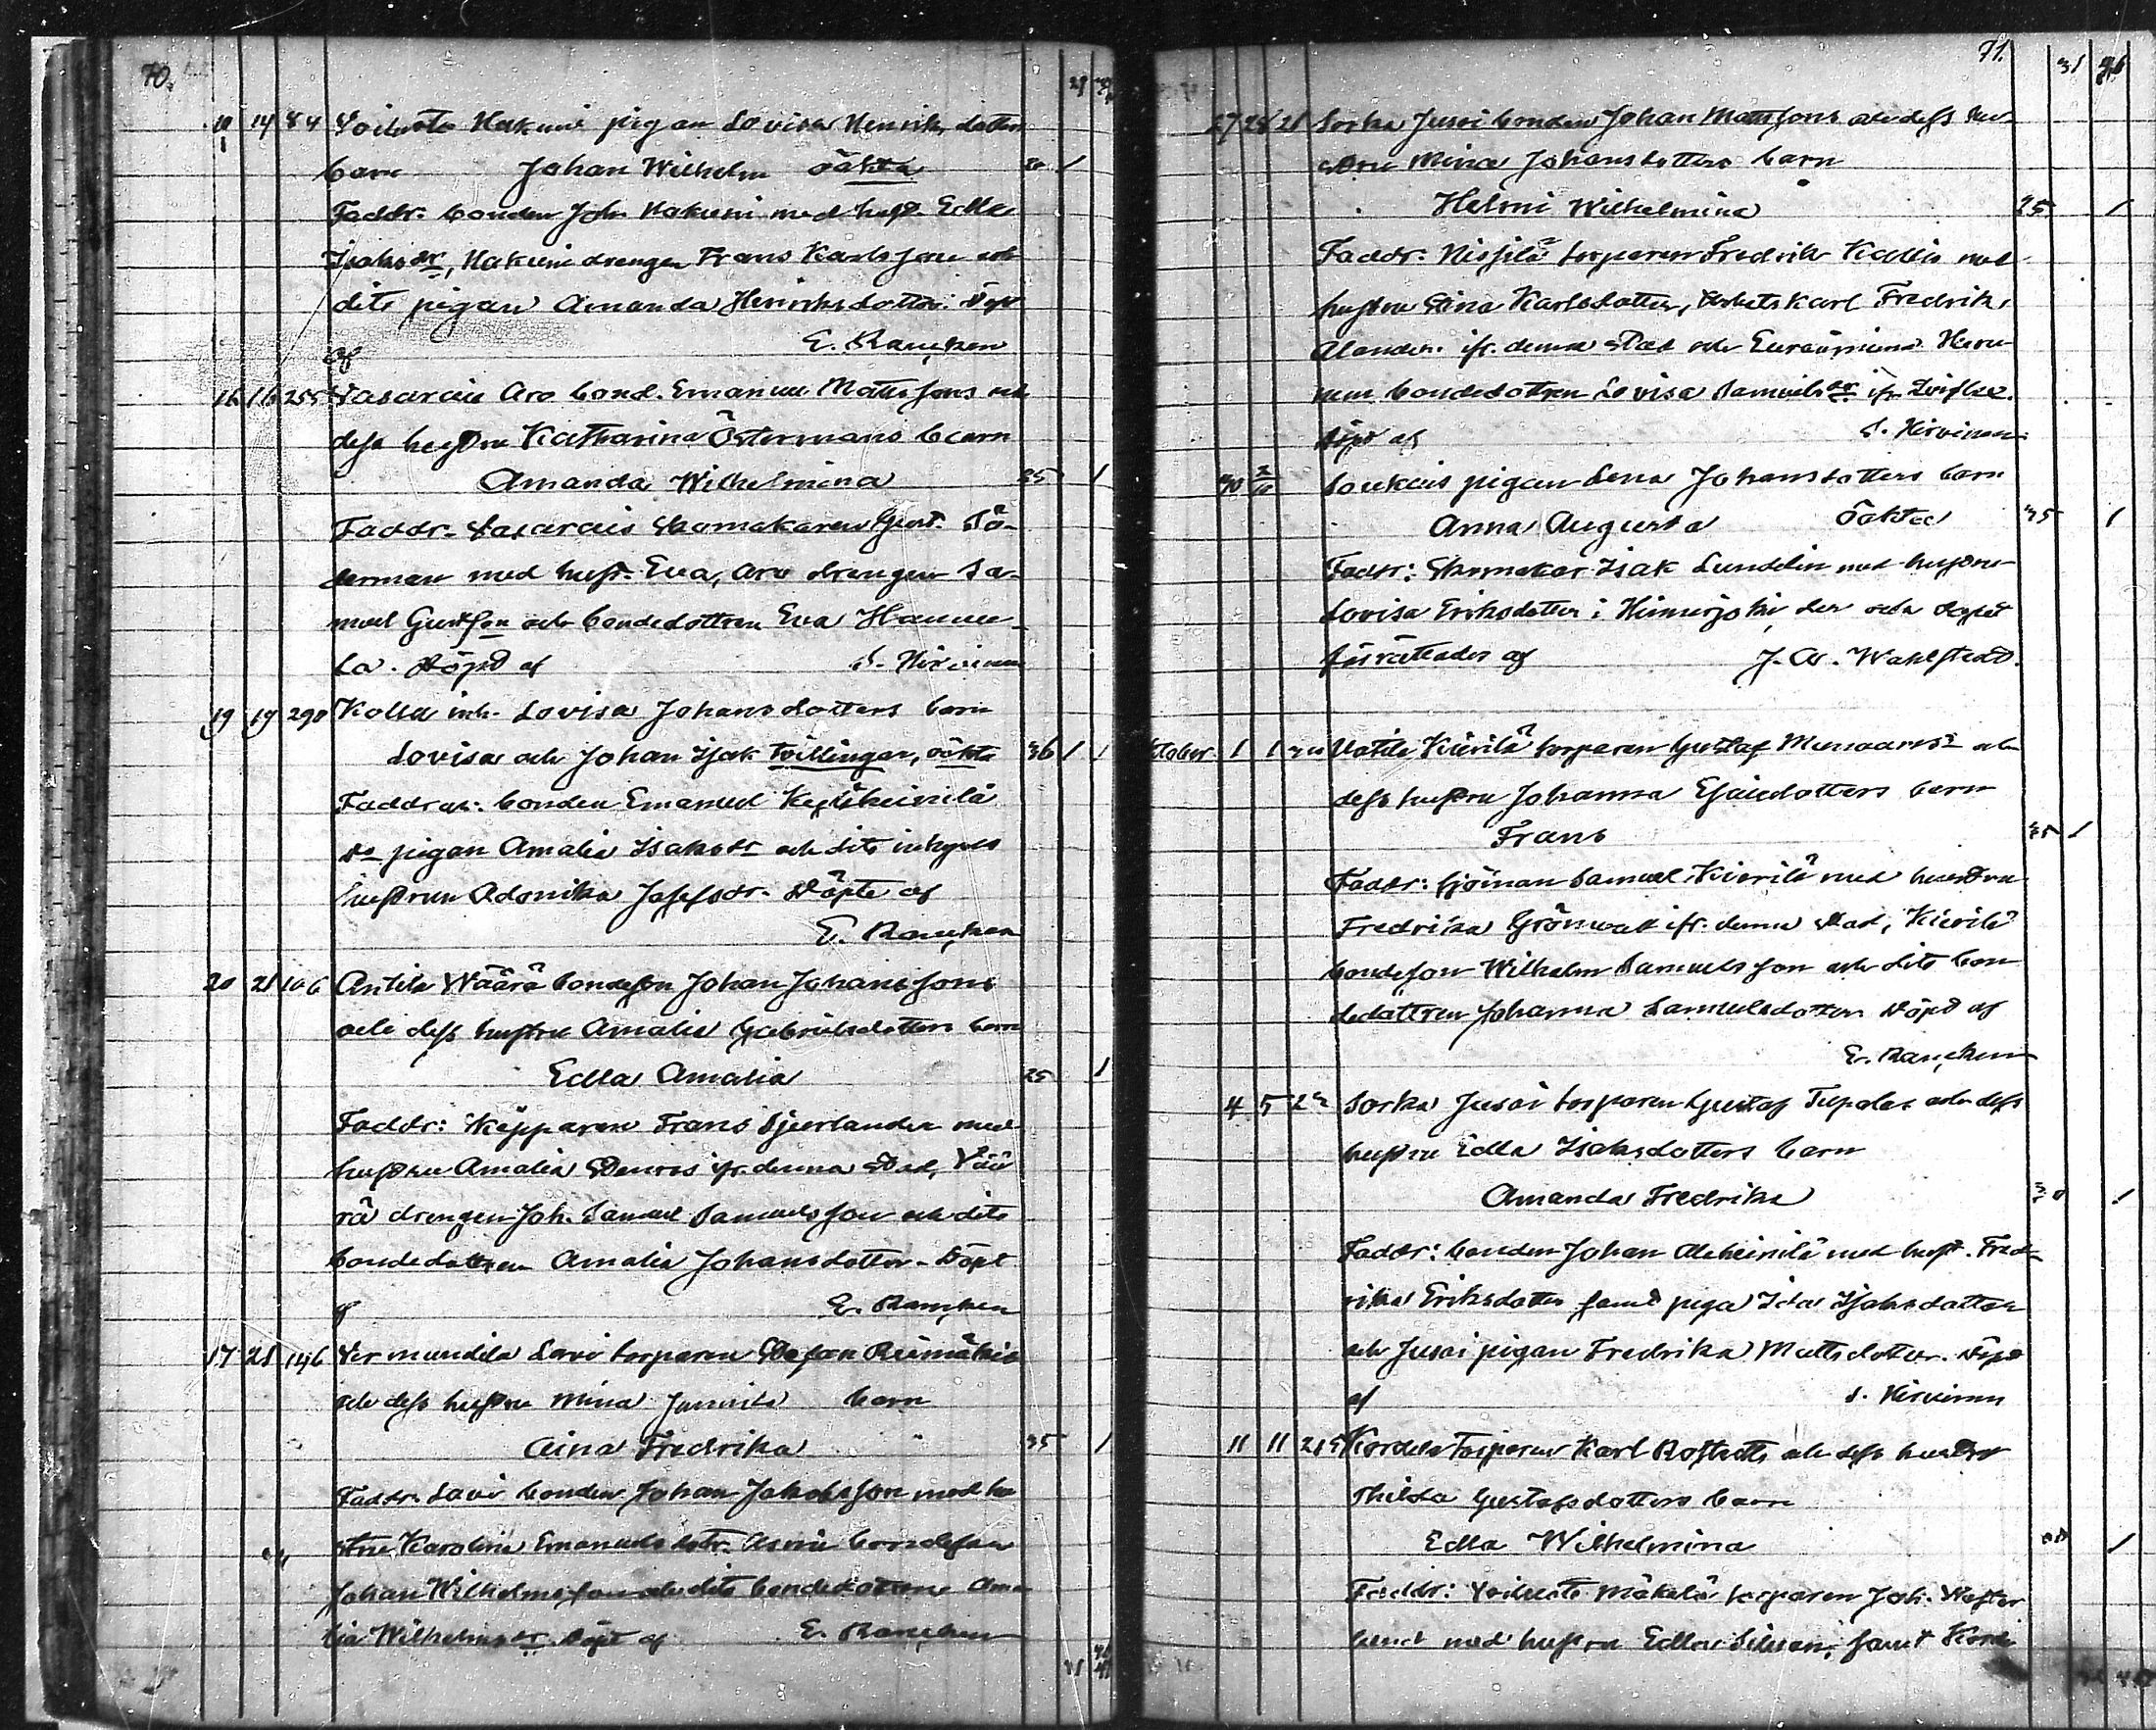 70.
10 14 84 Voiluoto Hakuni pigan Lovisa Henriksdotters
barn Johan Wilhelm oäkta 20 1
Faddr: bonden Joh. Hakuni med hust. Edla
Isaksdr, Hakuni drengen Frans Karlsson och
dito pigan Amanda Henriksdotter. Döpt
af E. Rancken
16 16 255 Vasarais Aro bond. Emanuel Mattssons och
dess hustru Katharina Östermans barn
Amanda Wilhelmina 35 1
Faddr. Vasarais Skomakaren Gust. Sö-
derman med hust. Eva, Aro drengen Sa-
muel Gustfson och bondedottren Eva Hannu-
la. Döpt af S. Hirvinen
19 19 290 Kolla inh. Lovisa Johansdotters barn
Lovisa och Johan Isak tvillingar, oäkta 36 1 1
Faddrar: bonden Emanuel
do pigan Amalia Isaksdr och dito inhyses
hustrun Adonika Josefsdr. Döpte af
E. Rancken
20 21 106 Antila Wäärä bondeson Johan Johanssons
och dess hustru Amalia Gabrielsdotters barn
Edla Amalia 25 1
Faddr: Frans med
hustru Amalia ifr. denna Stad, Vää
rä drengen Joh. Samuel Samuelsson och dito
bondedottren Amalia Johansdotter. Döpt
af E. Rancken
17 21 146 Vermundila Lavi torparen Stefan Riimäkis
och dess hustru Mina barn
Aina Fredrika 35 1
Faddr. Lavi bonden Johan Jakobsson med hu
stru Karolina Emanuelsdotr. bondeson
Johan Wilhelmsson och dito bondedottren Ama
lia Wilhelmsdr. Döpt af E. Rancken
71.
31 46
27 28 21 Sorka Jussi bonden Johan Mattssons och dess hu-
stru Mina Johansdotters barn
Helmi Wilhelmina 25 1
Faddr: torparen Fredrik med
hustru Stina Karlsdotter, Arbetskarl Fredrik
Alander ifr. denna Stad och Euraåminne
bondedottren Lovisa Samuelsdr ifr.
döpt af S. Hirvinen
30 2/10 pigan Lena Johansdotters barn
Anna Augusta Oäkta 35 1
Faddr: Skomakar Isak Lundelin med hustru
Lovisa Eriksdotter i Hinnerjoki, der och dopet
förrättades af J. A. Wahlstedt.
Oktober. 1 1 Vatila Kiirilä torparen Gustaf och
dess hustru Johanna Esaiedotters barn
Frans 35 1
Faddr: sjöman Samuel Kiirilä med hustru
Fredrika Grönwall ifr. denna Stad, Kiirilä
bondeson Wilhelm Samuelsson och dito bon
dedottren Johanna Samuelsdotter Döpt af
E. Rancken
4 5 Sorka Jussi torparen Gustaf och dess
hustru Edla Isaksdotters barn
Amanda Fredrika 30 1
Faddr: bonden Johan Aleheinilä med hust. Fred-
rika Eriksdotter samt piga Ida Isaksdotter
och Jussi pigan Fredrika Mattsdotter. döpt
af S. Hirvinen
11 11 215 Kordela Torparen Karl och dess hustru
Thilda Gustafsdotters barn
Edla Wilhelmina 1
Faddr: Voiluoto Mäkelä torparen Joh. Wester
lund med hustru Edla samt Korde